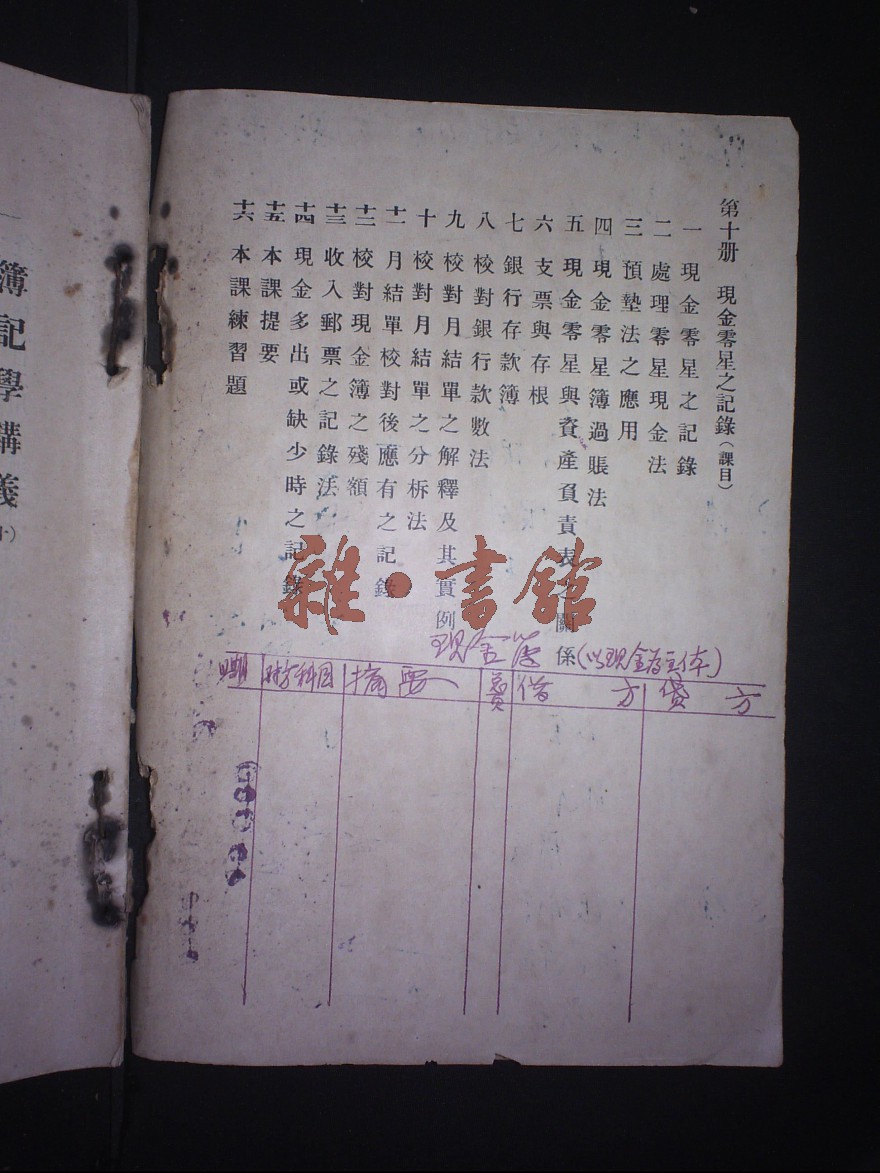 第十册 現金零星之記錄(課目)
一 現金零星之記錄
二 處理零星現金法
三 預墊法之應用
四 現金零星簿過賬法
五 現金零星與資產負責表之關係
六 支票與存根
七 銀行存款簿
八 校對銀行款數法
九 校對月結單之解釋及其實例
十 校對月結單之分柝法
十一 月結單校對後應有之記錄
十二 校對現金簿之殘額
十三 收入郵票之記錄法
十四 現金多出或缺少時之記錄
十五 本課提要
十六 本課練習題
雜·書館
現金簿(以現金為主体)
對方科目 摘要 借方 貸方
簿記學講義(十)
一